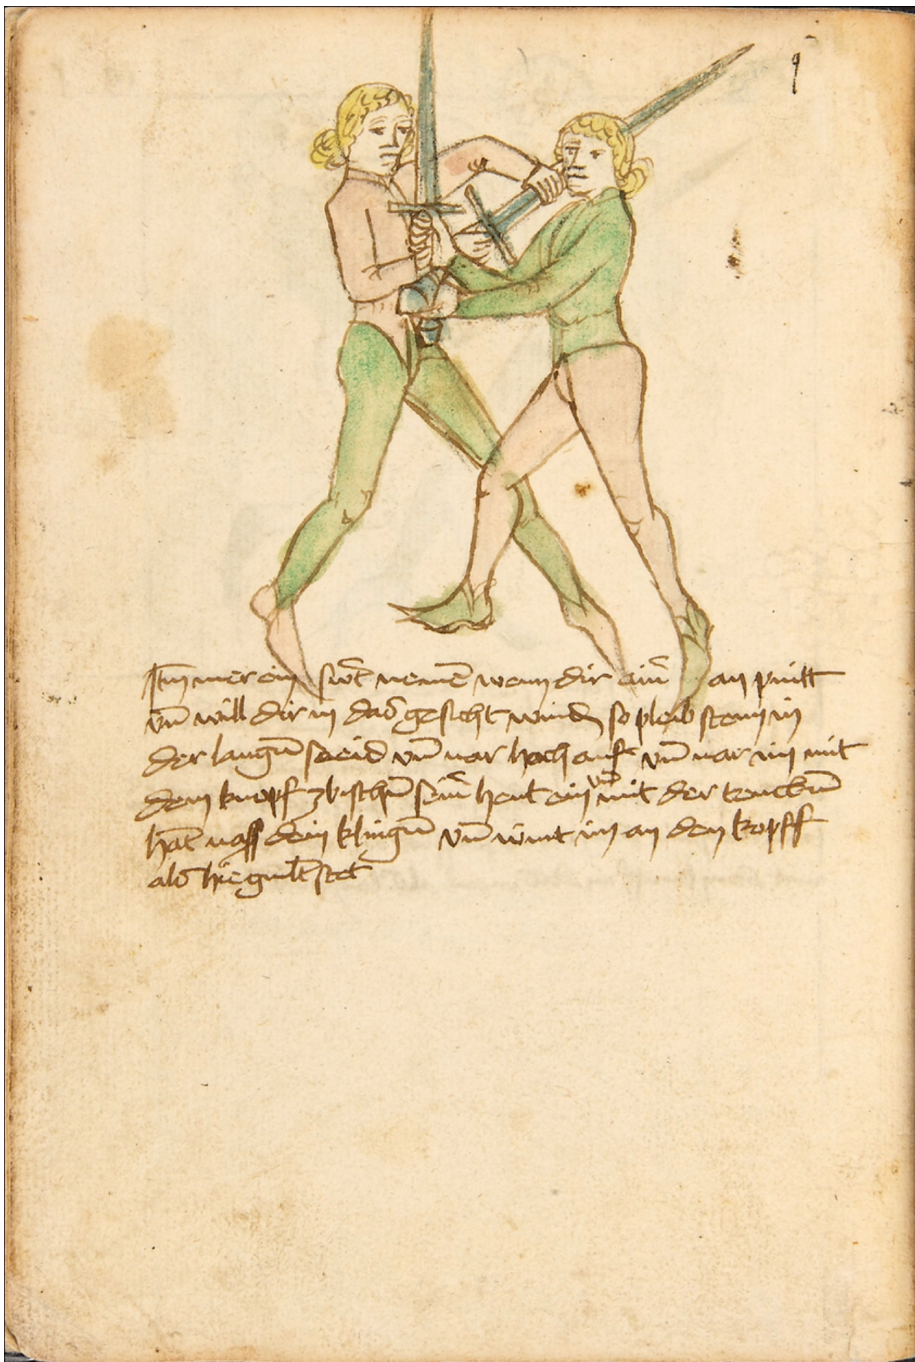 9
Itm mer ein swt̄ nemē wenn dir ainr̄ an pintt
vn̄ will dir in das gesicht windn so pleib sten in
der langn̄ sneid vn̄ var hoch auf vn̄ var im mit
dem knopf zbischn̄ sein̄ hent ein vn̄ mit der tenckn̄
hāt vass dein klingn̄ vn̄ wint im an den kopff
als hie gmlt̄ stet